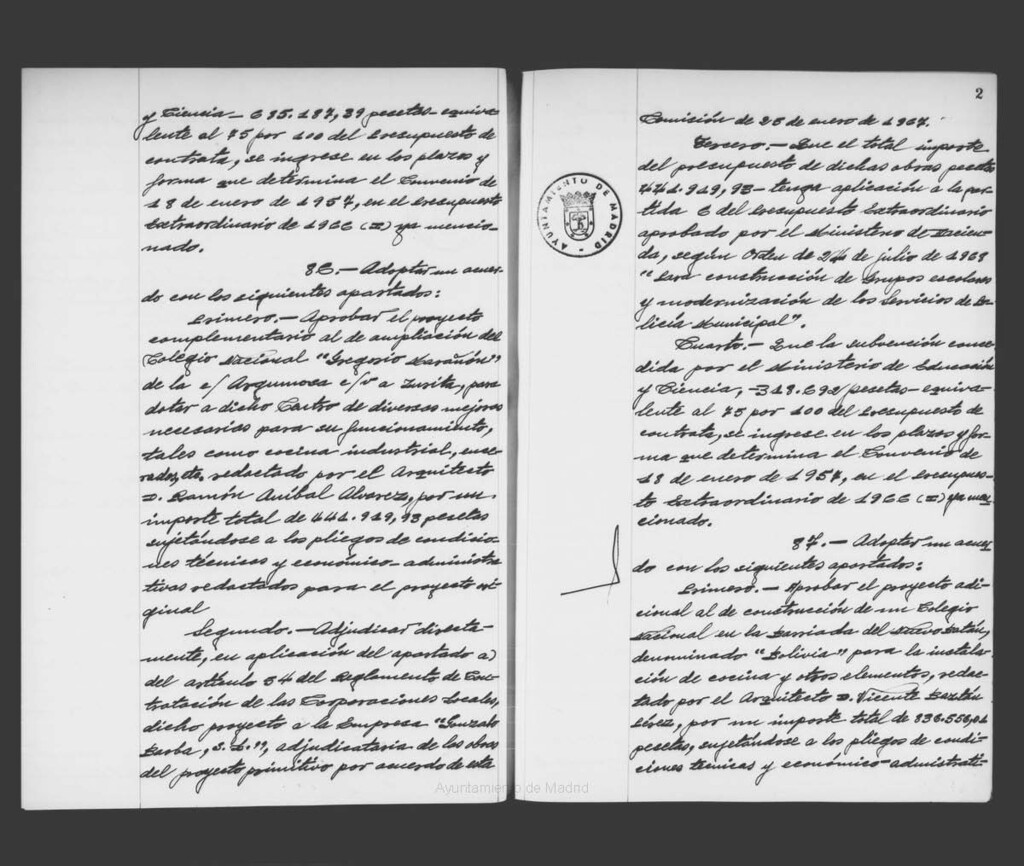 y Ciencia — 685.187,39 pesetas- equiva-
lente al 75 por 100 del Presupuesto de
contrata, se ingrese en los plazos y
forma que determina el Convenio de
18 de enero de 1957, en el Presupuesto
Extraordinario de 1966 (II) ya mencio-
nado.
86.— Adoptar un acuer-
do con los siguientes apartados:
Primero.— Aprobar el proyecto
complementario al de ampliación del
Colegio Nacional "Gregorio Marañón"
de la c/ Argumosa c/v a Zurita, para
dotar a dicho Centro de diversas mejoras
necesarias para su funcionamiento,
tales como cocina industrial, ence-
rados, etc. redactado por el Arquitecto
D. Ramón Aníbal Alvarez, por un
importe total de 441.919,93 pesetas
sujetándose a los pliegos de condicio-
nes técnicas y económico-administra-
tivas redactados para el proyecto ori-
ginal
Segundo.— Adjudicar directa-
mente, en aplicación del apartado a)
del artículo 54 del Reglamento de Con-
tratación de las Corporaciones Locales,
dicho proyecto a la Empresa "Gonzalo
Barba, S.L.", adjudicataria de las obras
del proyecto primitivo por acuerdo de esta
2
Comisión de 25 de enero de 1967.
Tercero.— Que el total importe
del presupuesto de dichas obras pesetas
441.919,93- tenga aplicación a la par-
tida 6 del Presupuesto Extraordinario
aprobado por el Ministerio de Hacien-
da, según Orden de 24 de julio de 1968
"Para construcción de Grupos escolares
y modernización de los Servicios de Po-
licía Municipal".
Cuarto.— Que la subvención conce-
dida por el Ministerio de Educación
y Ciencia, -318.692 pesetas- equiva-
lente al 75 por 100 del Presupuesto de
contrata, se ingrese en los plazos y for-
ma que determina el Convenio de
18 de enero de 1957, en el Presupues-
to Extraordinario de 1966 (II) ya men-
cionado.
87.— Adoptar un acuer-
do con los siguientes apartados:
Primero.— Aprobar el proyecto adi-
cional al de construcción de un Colegio
Nacional en la barriada del Nuevo Batán,
denominado "Bolivia" para la instala-
ción de cocina y otros elementos, redac-
tado por el Arquitecto D. Vicente Baztán
Pérez, por un importe total de
pesetas, sujetándose a los pliegos de condi-
ciones técnicas y económico-administrati-
AYUNTAMIENTO DE MADRID
Ayuntamiento de Madrid